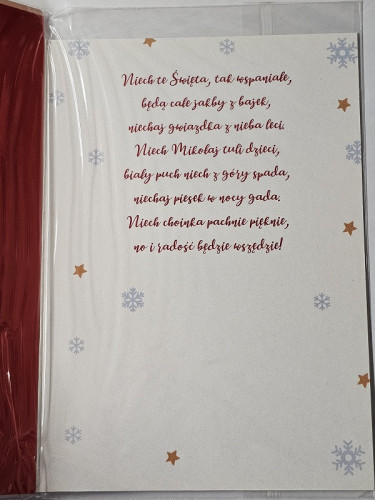 Niech te Święta, tak wspaniałe,
będą całe jakby z bajek,
niechaj gwiazdka z nieba leci.
Niech Mikołaj tuli dzieci,
biały puch niech z góry spada,
niechaj piesek w nocy gada.
Niech choinka pachnie pięknie,
no i radość będzie wszędzie!